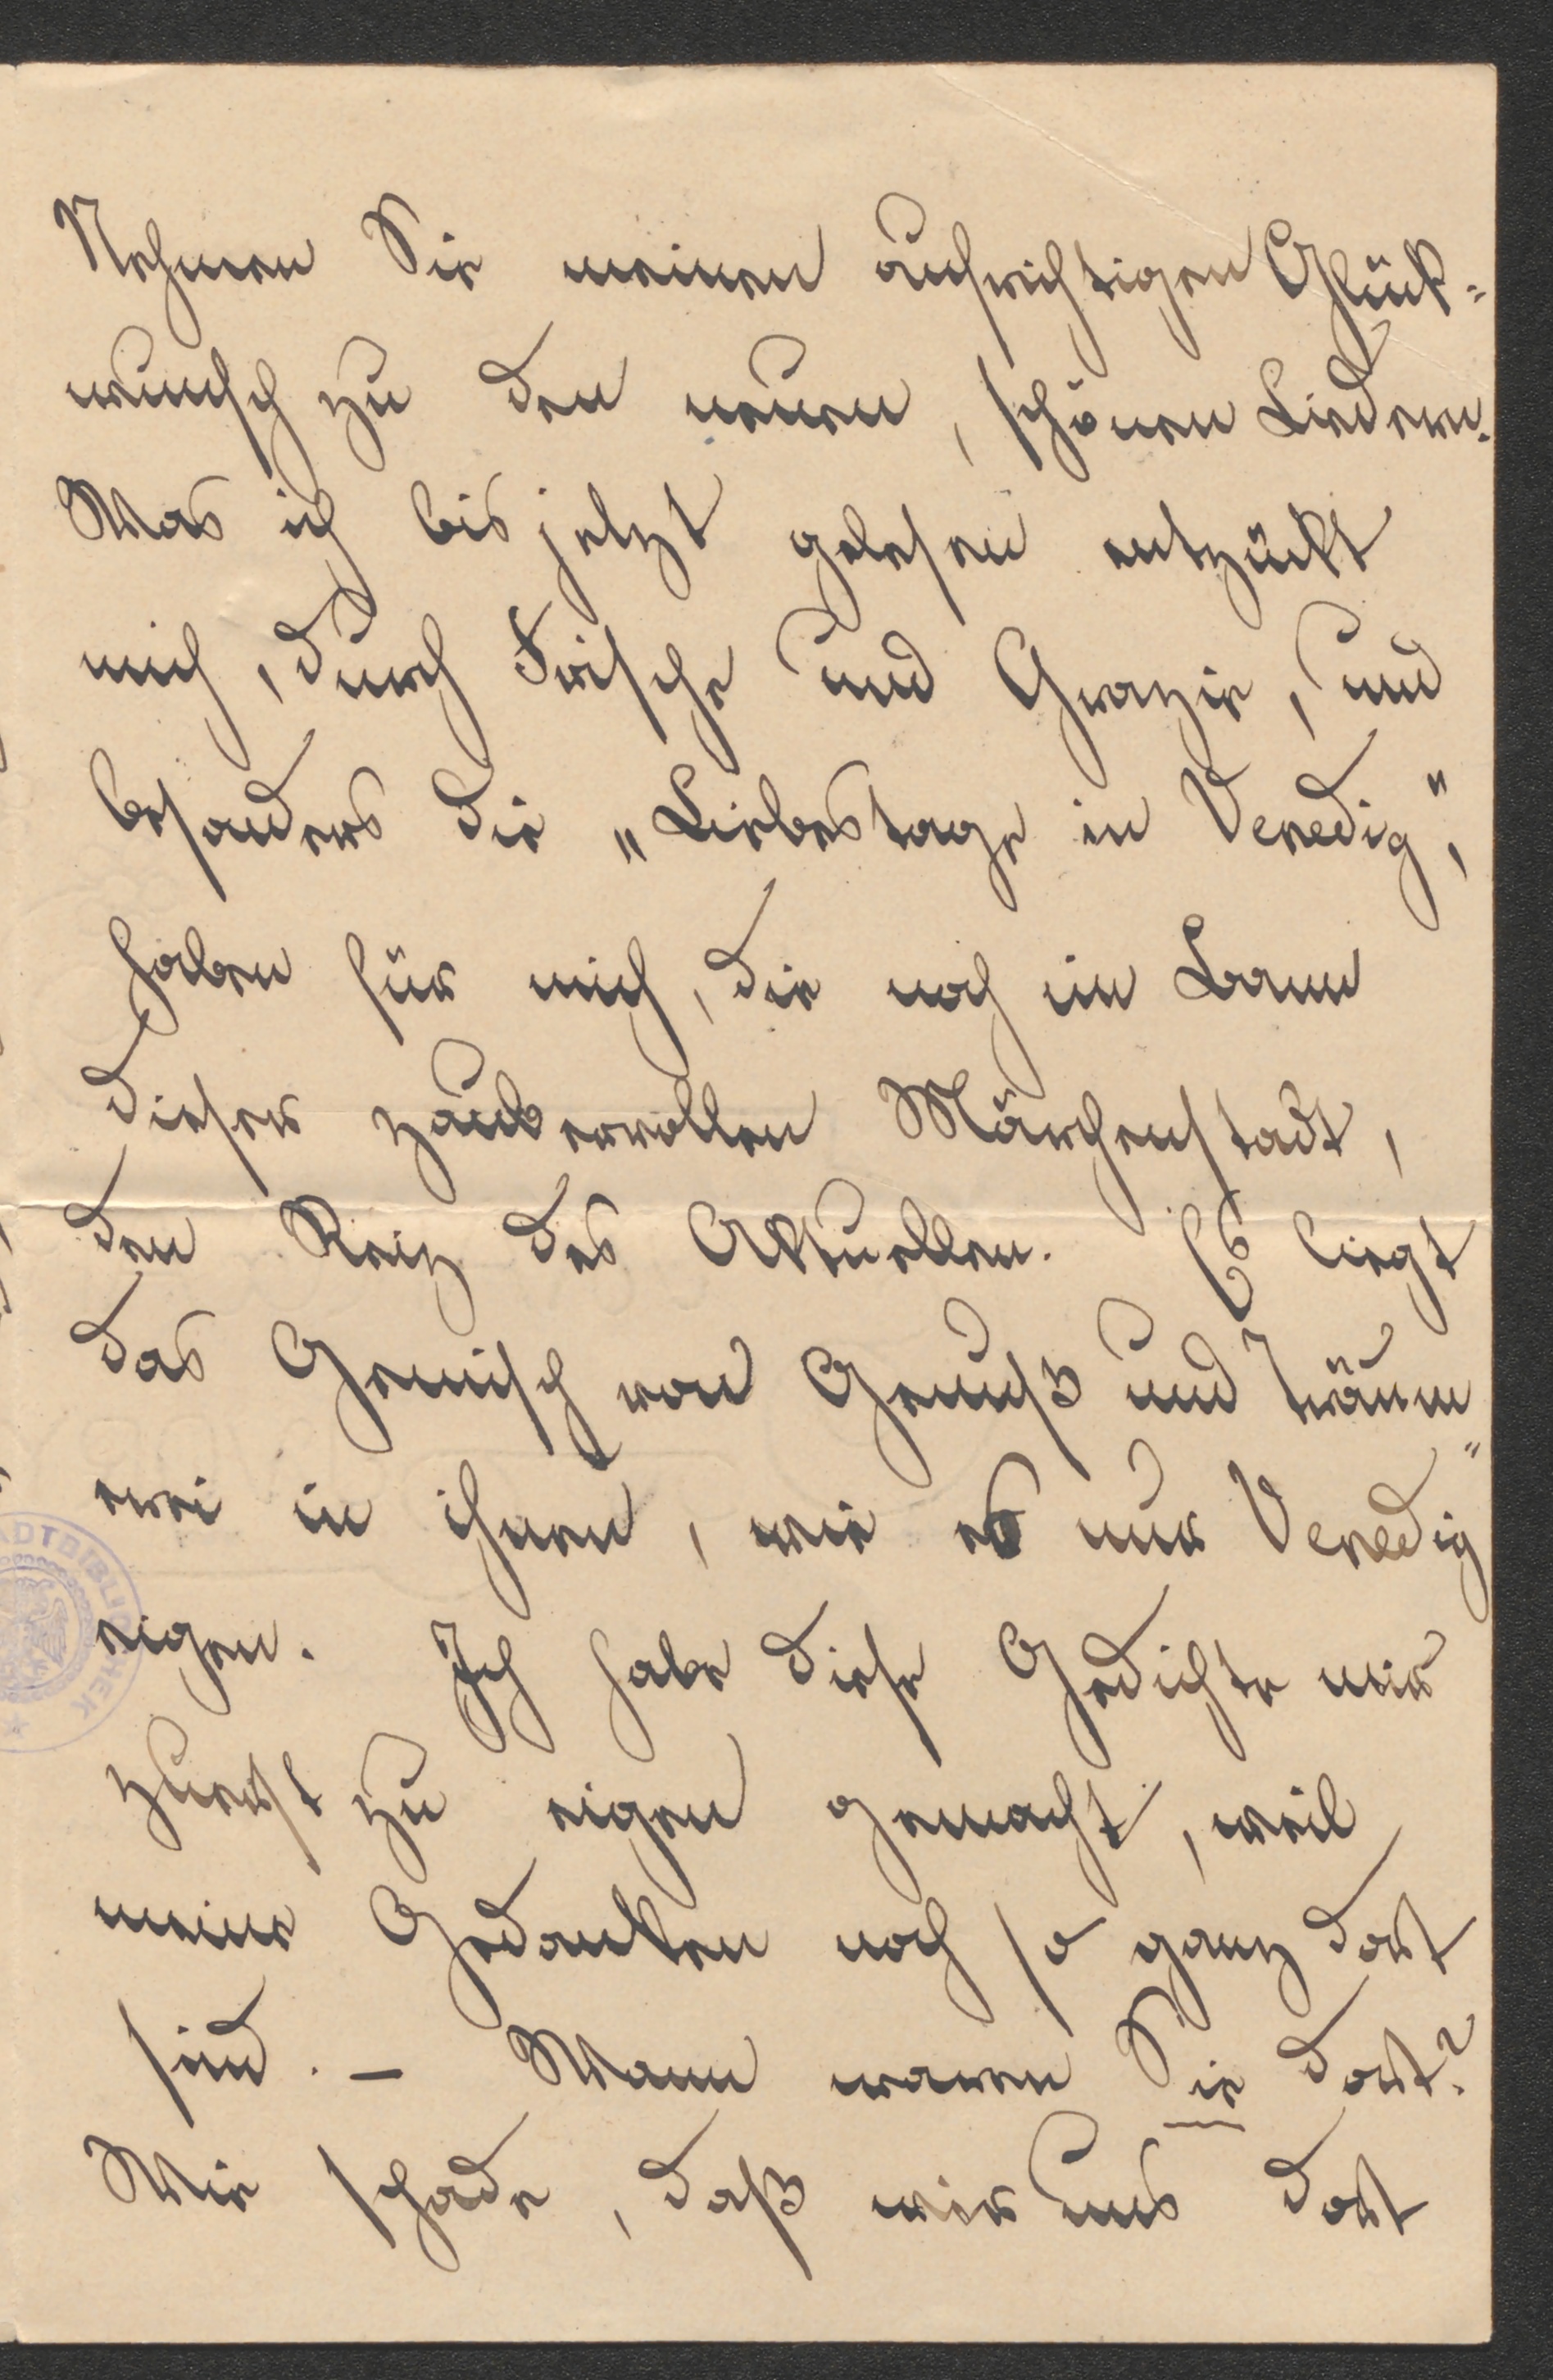 Nehmen Sie meinen aufrichtigen Glück-
wunsch zu den neuen, schönen Liedern.
Was ich bis jetzt gelesen entzückt
mich, durch Frische und Grazie, und
besonders die „Liebestage in Venedig",
haben für mich, die noch im Bann
dieser zaubervollen Märchenstadt,
den Reiz des Aktuellen. Es liegt
das Gemisch von Genuß und Träum"
erei in ihnen, wie es nur Venedig
eigen. Ich habe diese Gedichte mir
zuerst zu eigen gemacht, weil
meine Gedanken noch so ganz dort
sind. – Wann waren Sie dort?
Wie schade, daß wir uns dort